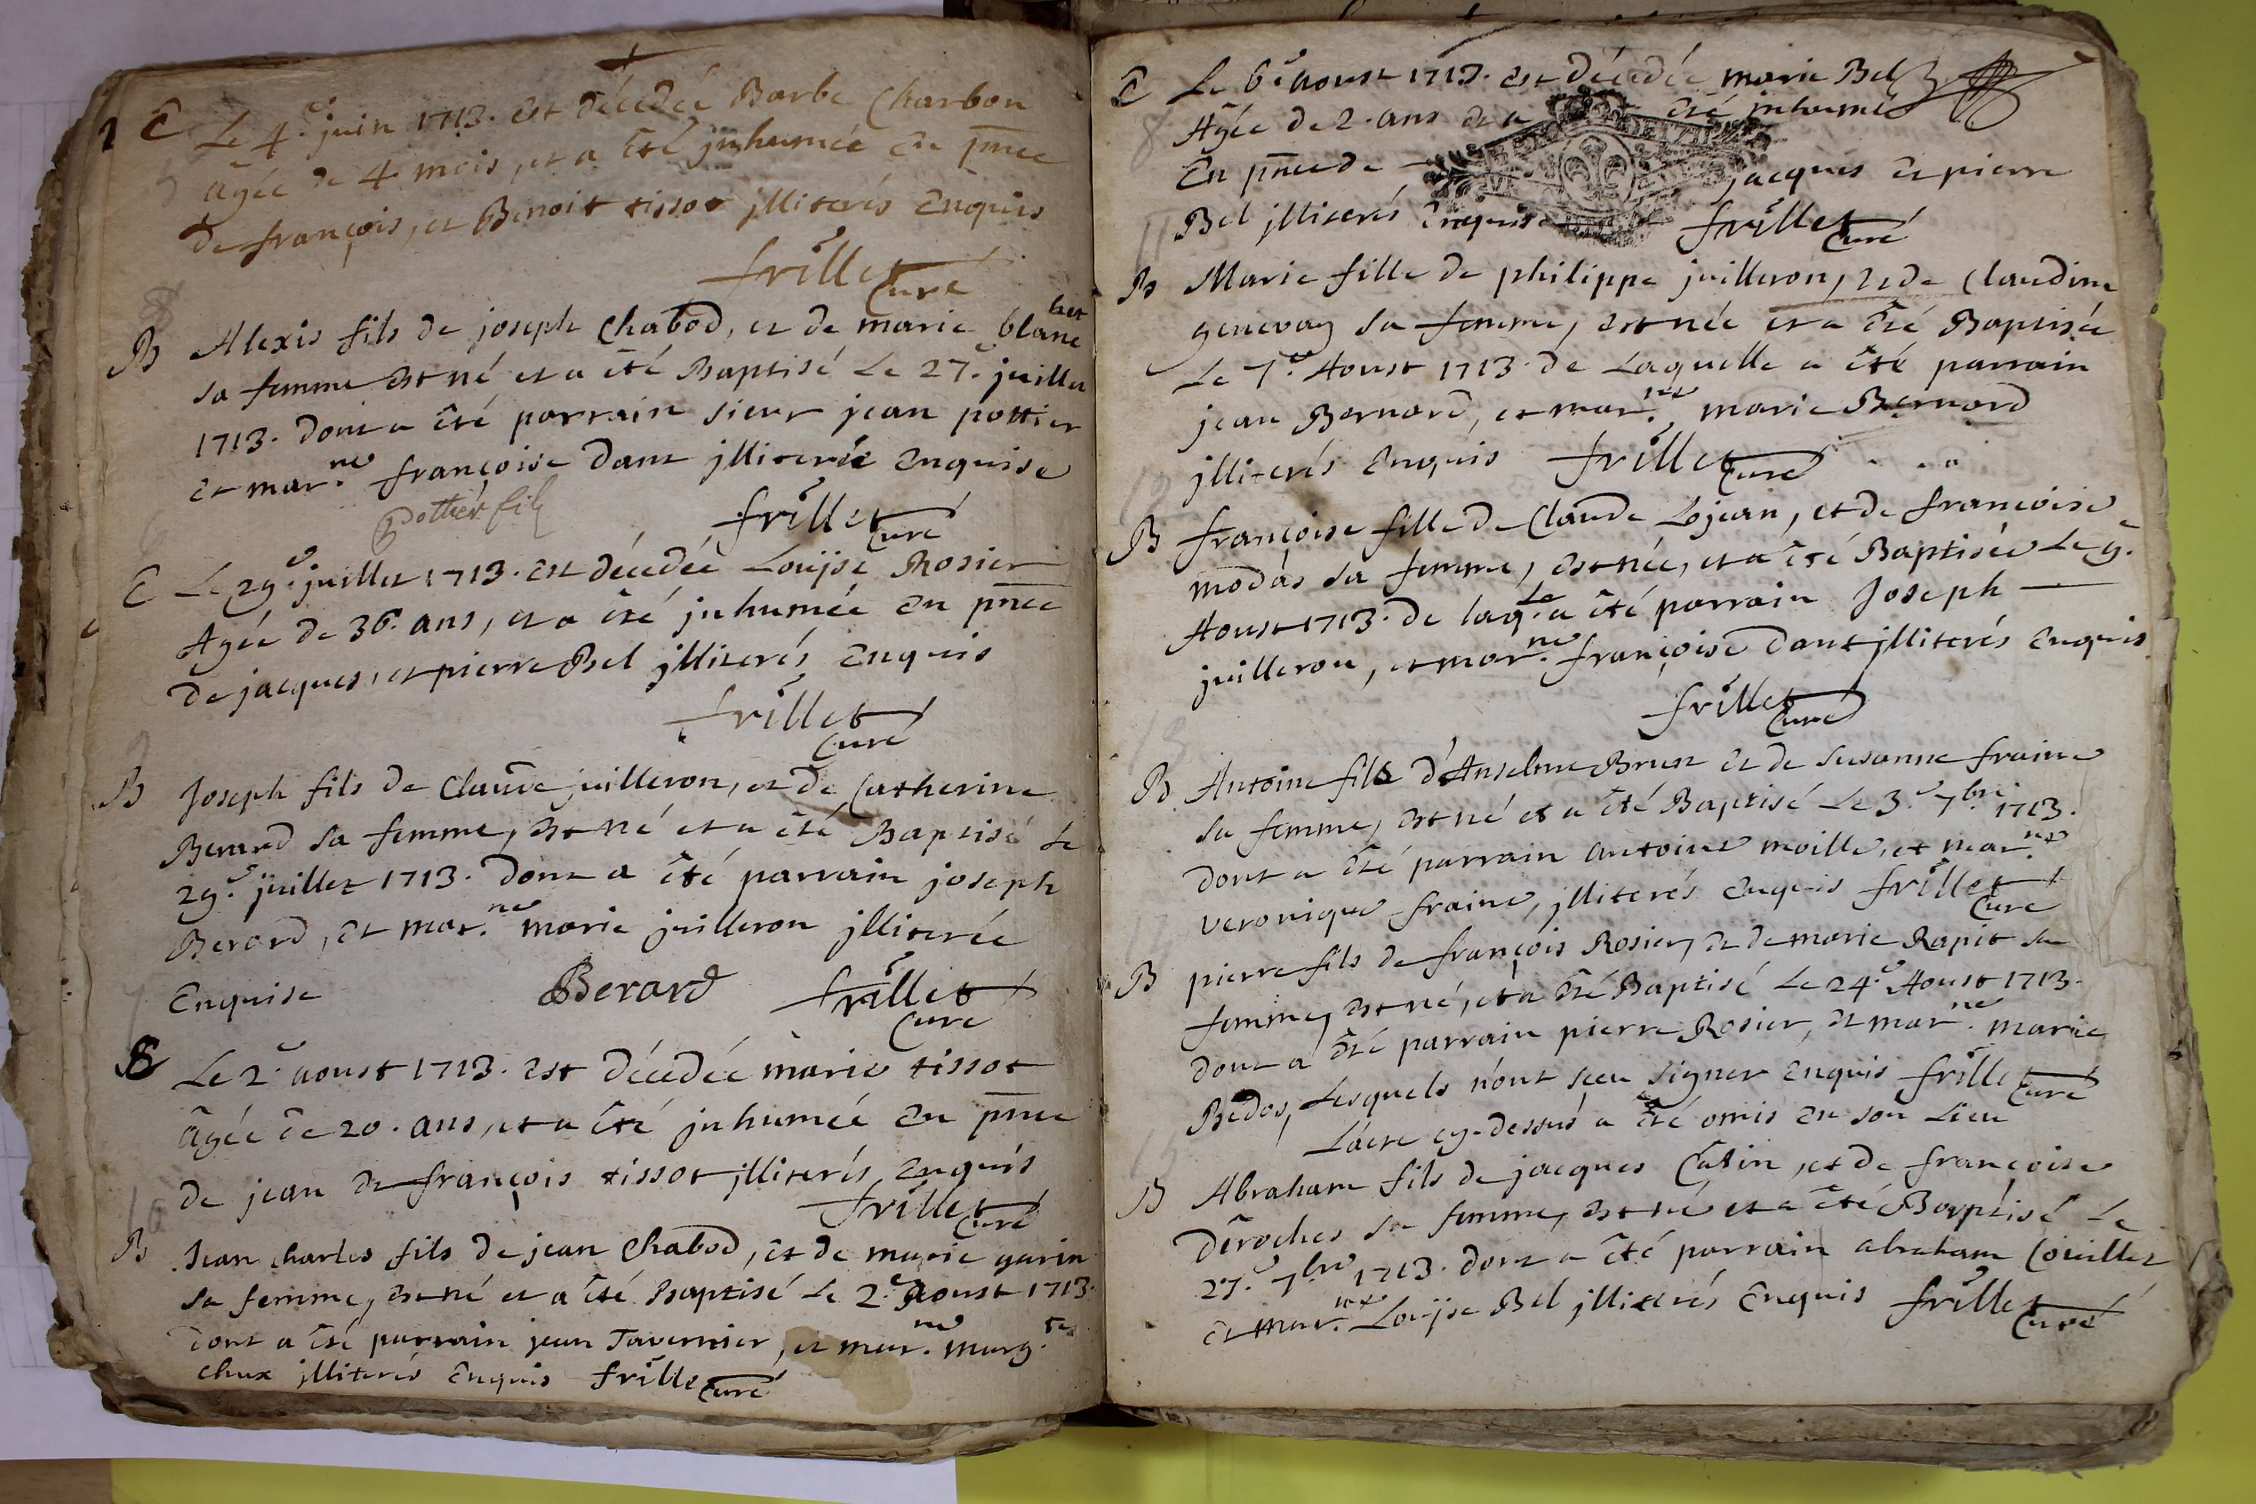 E Le 4.e juin 1713. est décedée Barbe Charbon
agée de 4. mois, et a êté jnhumée en pnce
de françois, et Benoit tissot jlliterés enquis
frillet
Curé
B Alexis fils de joseph Chabod, et de marie blanchet
sa femme est né et a êté Baptisé Le 27.e juillet
1713. dont a êté parrain sieur jean pottier
et mar.ne françoise dant jlliterée enquise
Pottier fils
frillet
Curé
E Le 29.e juillet 1713. est décedée Louÿse Rosier
Agée de 36. ans, et a êté jnhumée en pnce
de jacques, et pierre Bel jlliterés enquis
frillet
Curé
B Joseph fils de Claude juilleron, et de Catherine
Berard sa femme, est né et a êté Baptisé Le
29.e juillet 1713. dont a êté parrain joseph
Berard, et mar.ne marie juilleron jlliterée
Enquise Berard frillet
Curé
E Le 2.e aoust 1713. est décedée marie tissot
âgée de 20. ans, et a êté jnhumée en pnce
de jean et françois tissot jlliterés enquis
frillet
Curé
B Jean charles fils de jean Chabod, et de marie garin
sa femme, est né et a êté Baptisé Le 2.e Aoust 1713.
dont a êté parrain jean Tavernier, et mar.ne marg.te
chux jlliterés enquis frillet
Curé
E Le 6.e aoust 1713. est décedée marie Bel
Agée de 2. ans et a êté jnhumée
En pnce de jacques et pierre
Bel jlliterés enquis frillet
Curé
B Marie fille de philippe juilleron, et de Claudine
genevay sa femme, est née et a êté Baptisée
Le 7.e Aoust 1713. de Laquelle a êté parrain
jean Bernard, et mar.ne marie Bernard
jlliterés enquis frillet
Curé
B françoise fille de Claude Lojean, et de françoise
modas sa femme, est née, et a êté Baptisée Le 9.e
Aoust 1713. de laq.le a êté parrain Joseph
juilleron, et mar.ne françoise dant jlliterés enquis
frillet
Curé
B Antoine fils d'Anselme Brust et de susanne fraine
sa femme, est né et a êté Baptisé Le 3.e 7.bre 1713.
dont a êté parrain antoine moille, et mar.ne
veronique fraine, jlliterés enquis frillet
Curé
B pierre fils de françois Rosier, et de marie Rapit sa
femme, est né, et a êté Baptisé Le 24.e Aoust 1713.
dont a êté parrain pierre Rosier, et mar.ne marie
Bedos, Lesquels n'ont sçeu signer enquis frillet
Curé
L'acte cy-dessus a êté omis en son Lieu
B Abraham fils de jacques Catin, et de françoise
dêroches sa femme, est né et a êté Baptisé Le
27.e 7.bre 1713. dont a êté parrain abraham Couillet
et mar.ne Louÿse Bel jlliterés Enquis frillet
Curé